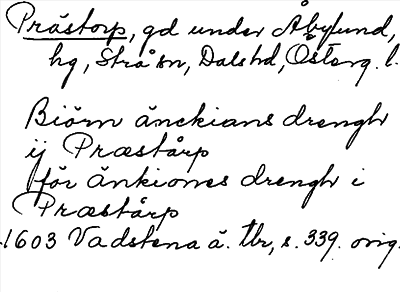 Prästorp, gd under Åbylund,
hg, Strå sn, Dalshd, Österg. l.
Biörn änckians drengh
ij Præstårp
för Änkiones drengh i
Præstårp
1603 Vadstena ä. tbr, s. 339. orig.